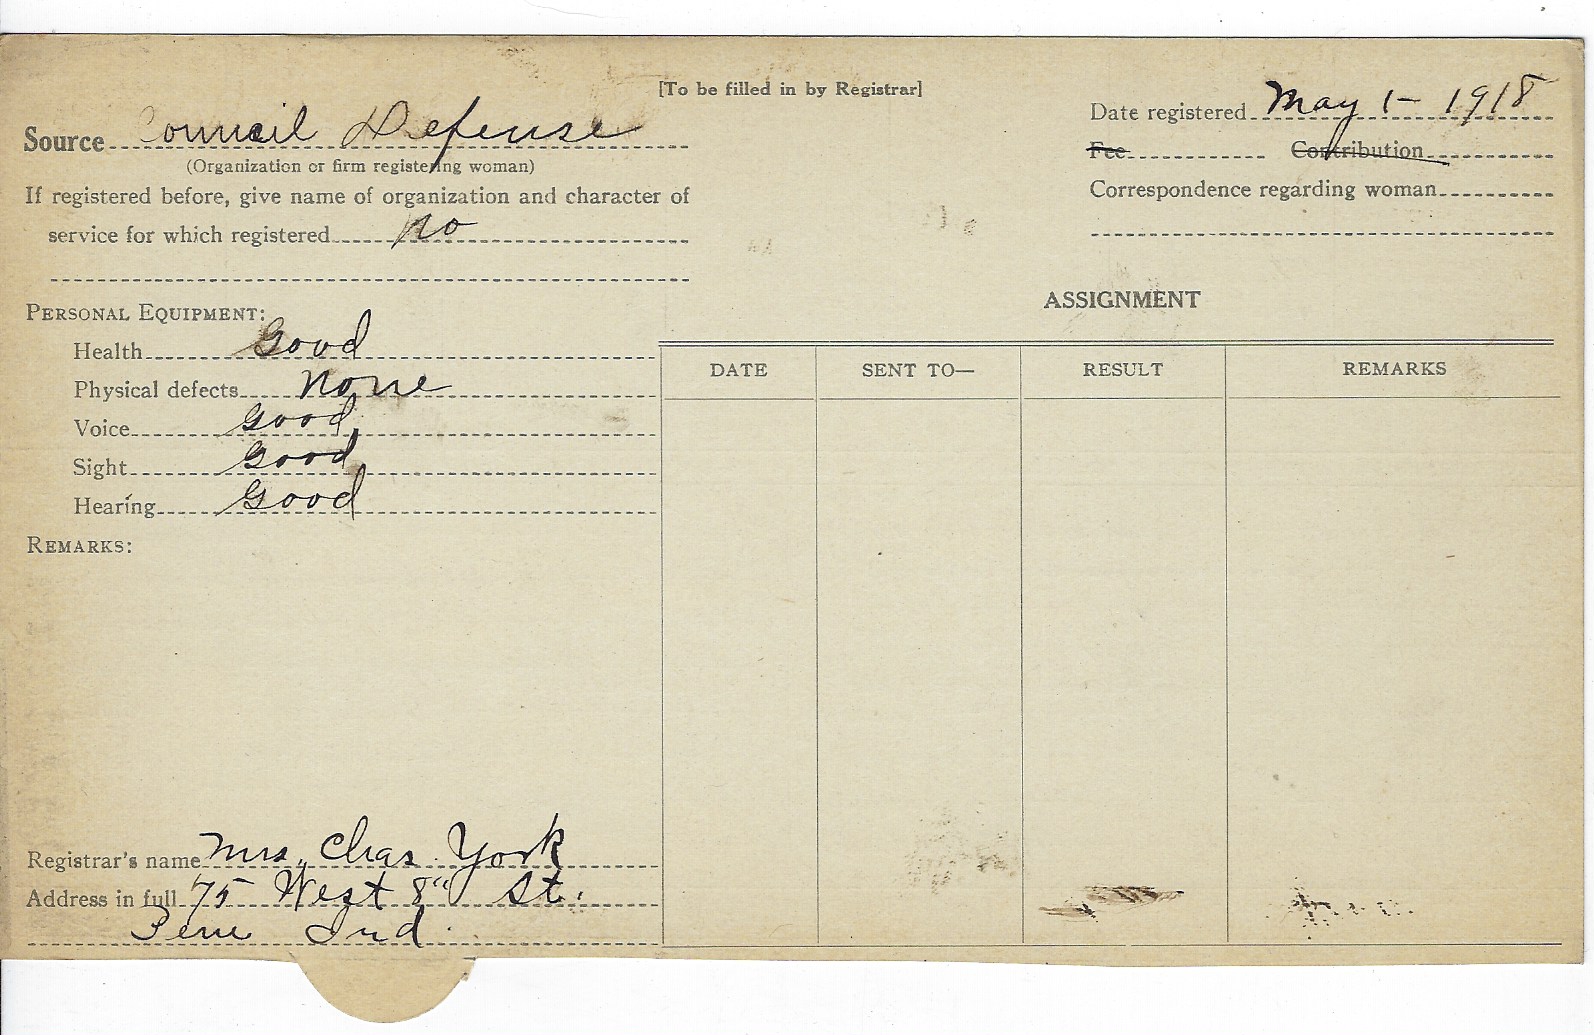 [To be filled in by Registrar]
Source Council Defense
(Organization or firm registering woman)
If registered before, give name of organization and character of
service for which registered no
Date registered May 1- 1918
Fee Contribution
Correspondence regarding woman
PERSONAL EQUIPMENT:
Health Good
Physical defects None
Voice Good
Sight Good
Hearing Good
REMARKS:
Registrar's name Mrs. Chas. York
Address in full 75 West 8" St.
Peru Ind.
ASSIGNMENT
DATE SENT TO— RESULT REMARKS